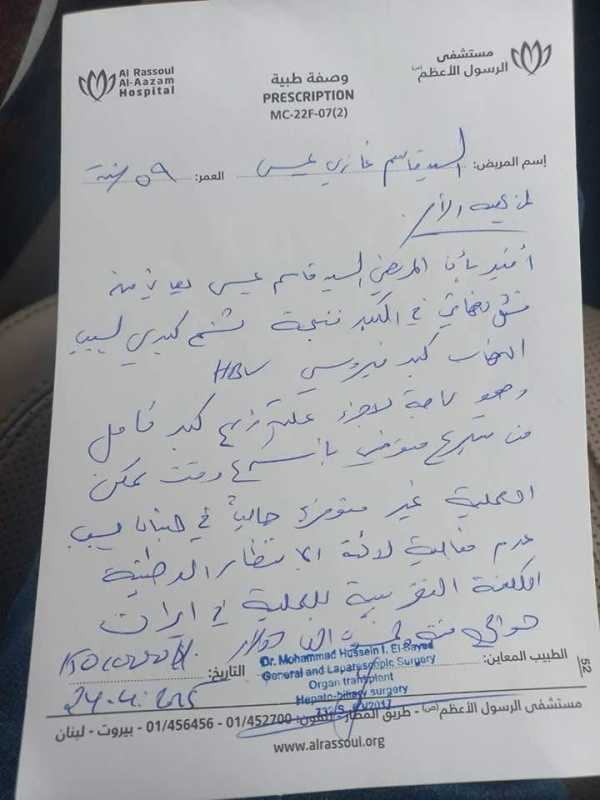 Al Rassoul
Al-Aazam
Hospital
وصفة طبية
PRESCRIPTION
MC-22F-07(2)
مستشفى
الرسول الأعظم (ص)
إسم المريض: السيد قاسم غازي عيسى العمر: ٥٩ سنة
لمن يهمه الأمر
أفيد بأن المريض السيد قاسم عيسى يعاني من
فشل نهائي في الكبد نتيجة تشمع كبدي بسبب
التهاب كبد فيروسي HBV
وهو بحاجة لاجراء عملية زرع كبد كامل
من متبرع متوفي بأسرع وقت ممكن
العملية غير متوفرة حالياً في لبنان بسبب
عدم فعالية لائحة الانتظار الوطنية
الكلفة التقريبية للعملية في ايران
حوالي مئة وخمسين الف دولار
150,000 $
الطبيب المعاين:
Dr. Mohammad Hussein I. El-Sayed
General and Laparascopic Surgery
Organ transplant
Hepato-biliary surgery
التاريخ:
52
مستشفى الرسول الأعظم (ص) - طريق المطار - تلفون: 01/452700 - 01/456456 - بيروت - لبنان
www.alrassoul.org